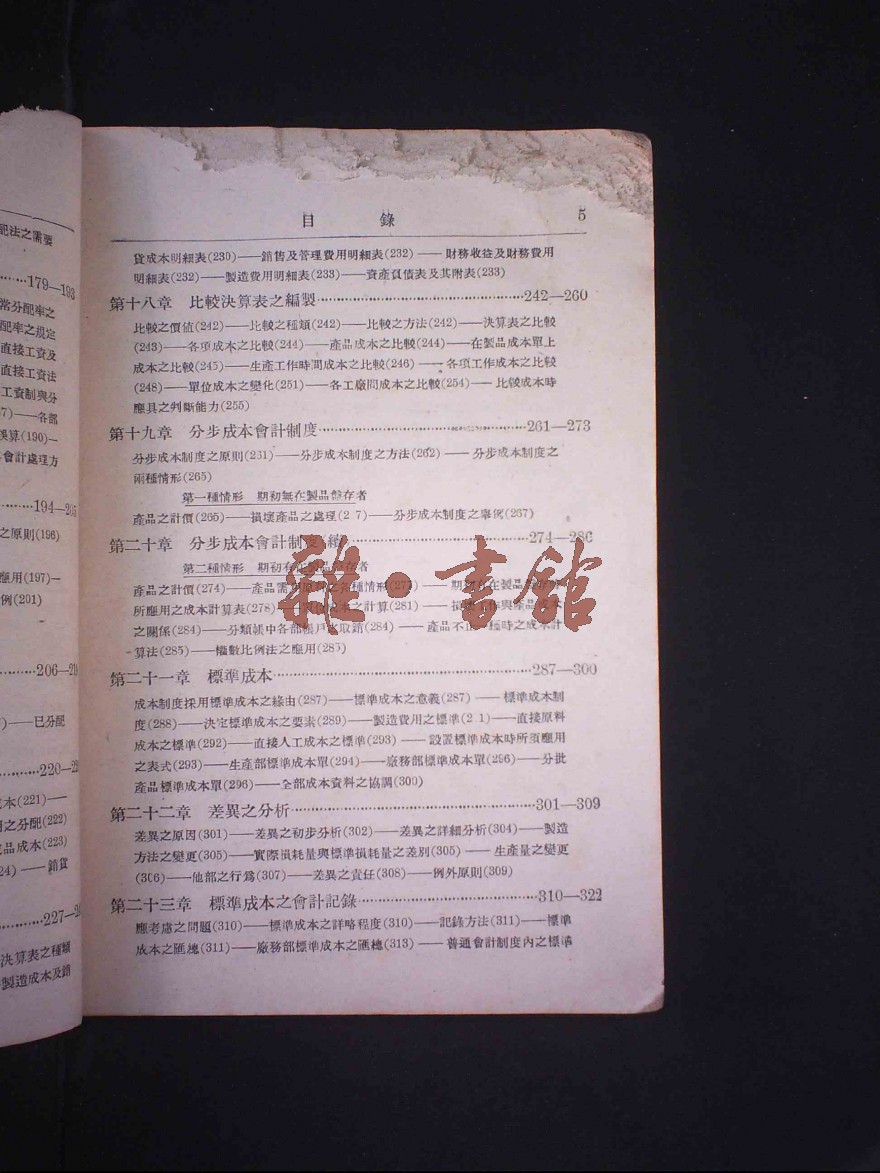 配法之需要
179—193
常分配率之
配率之規定
直接工資及
直接工資法
工資制與分
7)——各部
誤算(190)—
會計處理方
194—205
之原則(196)
應用(197)—
例(201)
206—219
)——已分配
220—22
本(221)——
用之分配(222)
成品成本(223)
24)——銷貨
227—2
決算表之種類
製造成本及銷
目錄 5
貨成本明細表(230)——銷售及管理費用明細表(232)——財務收益及財務費用
明細表(232)——製造費用明細表(233)——資產負債表及其附表(233)
第十八章 比較決算表之編製 242—260
比較之價值(242)——比較之種類(242)——比較之方法(242)——決算表之比較
(243)——各項成本之比較(244)——產品成本之比較(244)——在製品成本單上
成本之比較(245)——生產工作時間成本之比較(246)——各項工作成本之比較
(248)——單位成本之變化(251)——各工廠間成本之比較(254)——比較成本時
應具之判斷能力(255)
第十九章 分步成本會計制度 261—273
分步成本制度之原則(231)——分步成本制度之方法(262)——分步成本制度之
兩種情形(265)
第一種情形 期初無在製品存者
產品之計價(265)——損壞產品之處理(2 7)——分步成本制度之舉例(267)
第二十章 分步成本會計制度(續) 274—286
第二種情形 期初有在製品存者
產品之計價(274)——產品需用原料之各種情形(27 ——期初存在製品
所應用之成本計算表(278)——成本之計算(281)——損壞工作與產品成本
之關係(284)——分類帳中各部帳戶之取銷(284)——產品不止一種時之成本計
算法(285)——權數比例法之應用(285)
第二十一章 標準成本 287—300
成本制度採用標準成本之緣由(287)——標準成本之意義(287)——標準成本制
度(288)——決定標準成本之要素(289)——製造費用之標準(2 1)——直接原料
成本之標準(292)——直接人工成本之標準(293)——設置標準成本時所須應用
之表式(293)——生產部標準成本單(294)——廠務部標準成本單(296)——分批
產品標準成本單(296)——全部成本資料之協調(300)
第二十二章 差異之分析 301—309
差異之原因(301)——差異之初步分析(302)——差異之詳細分析(304)——製造
方法之變更(305)——實際損耗量與標準損耗量之差別(305)——生產量之變更
(306)——他部之行爲(307)——差異之責任(308)——例外原則(309)
第二十三章 標準成本之會計記錄 310—322
應考慮之問題(310)——標準成本之詳略程度(310)——記錄方法(311)——標準
成本之匯總(311)——廠務部標準成本之匯總(313)——普通會計制度內之標準
雜·書館